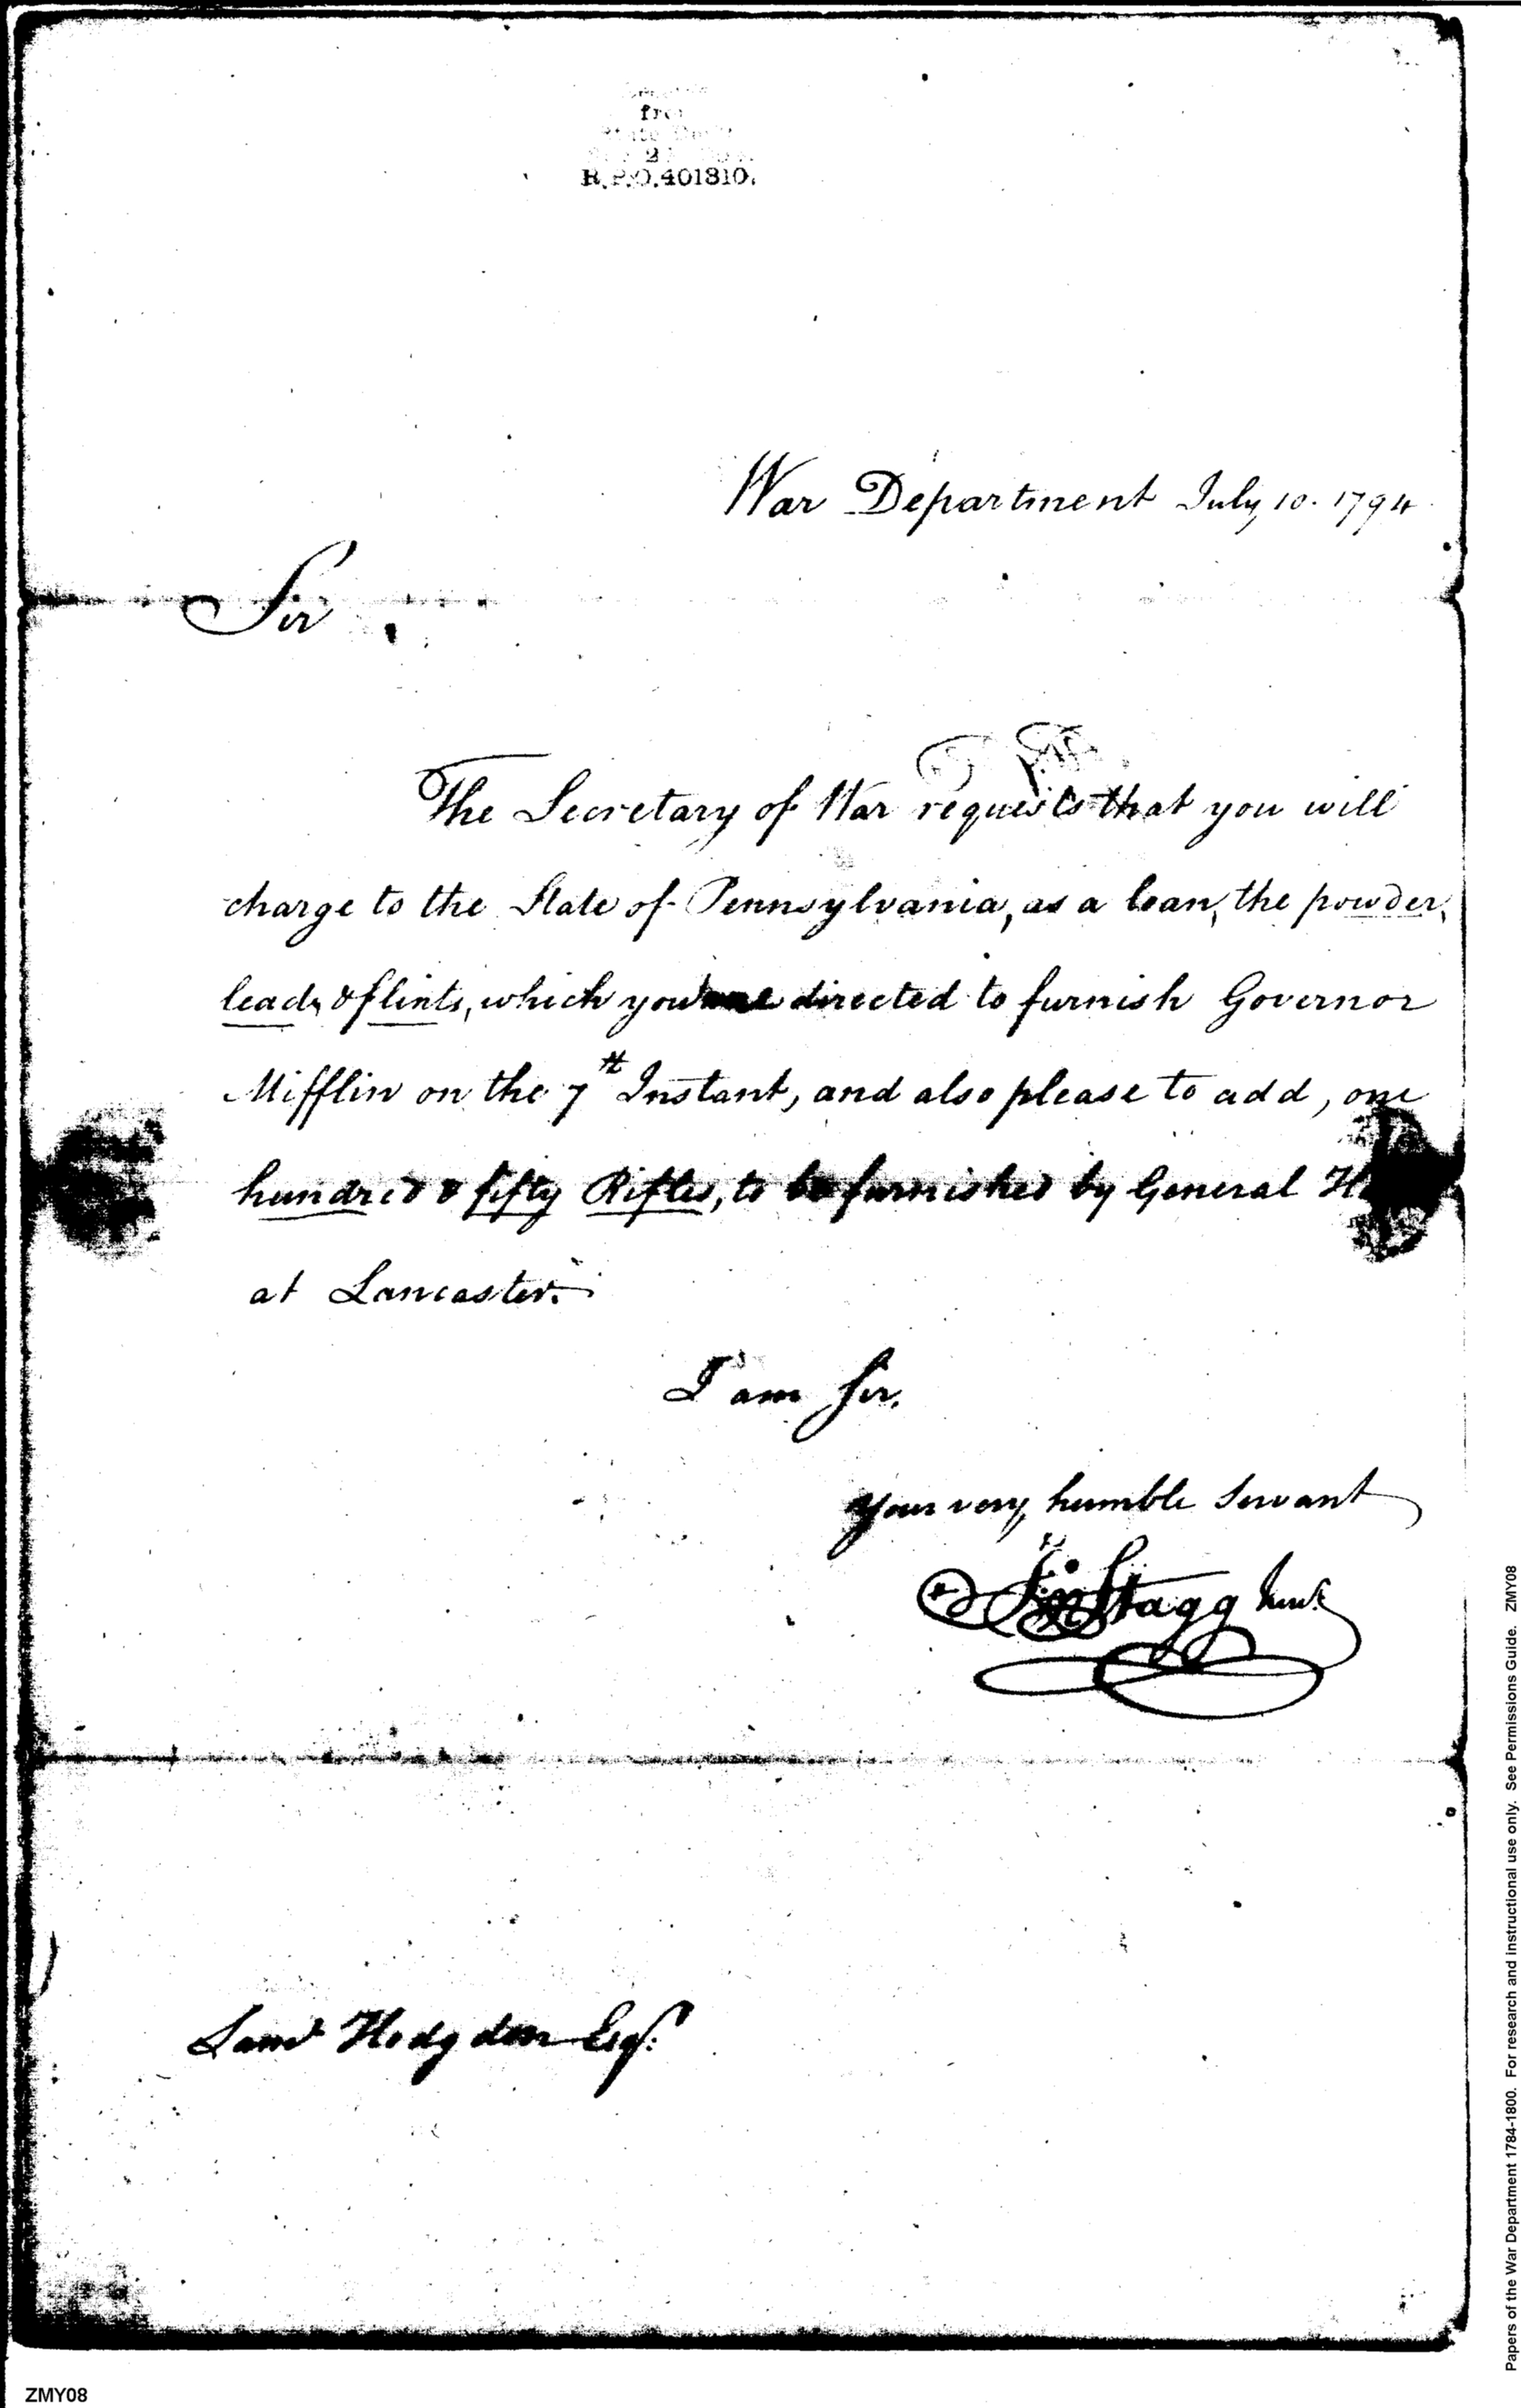 from
R.P.O.401810.
War Department July 10. 1794
Sir
The Secretary of War requests that you will
charge to the State of Pennsylvania, as a loan, the powder,
lead, & flints, which you were directed to furnish Governor
Mifflin on the 7th Instant, and also please to add, one
hundred & fifty Rifles, to be furnished by General
at Lancaster.
I am Sir.
Your very humble Servant
Jno Stagg Junr
Saml Hodgdon Esqr.
ZMY08
Papers of the War Department 1784-1800. For research and instructional use only. See Permissions Guide. ZMY08